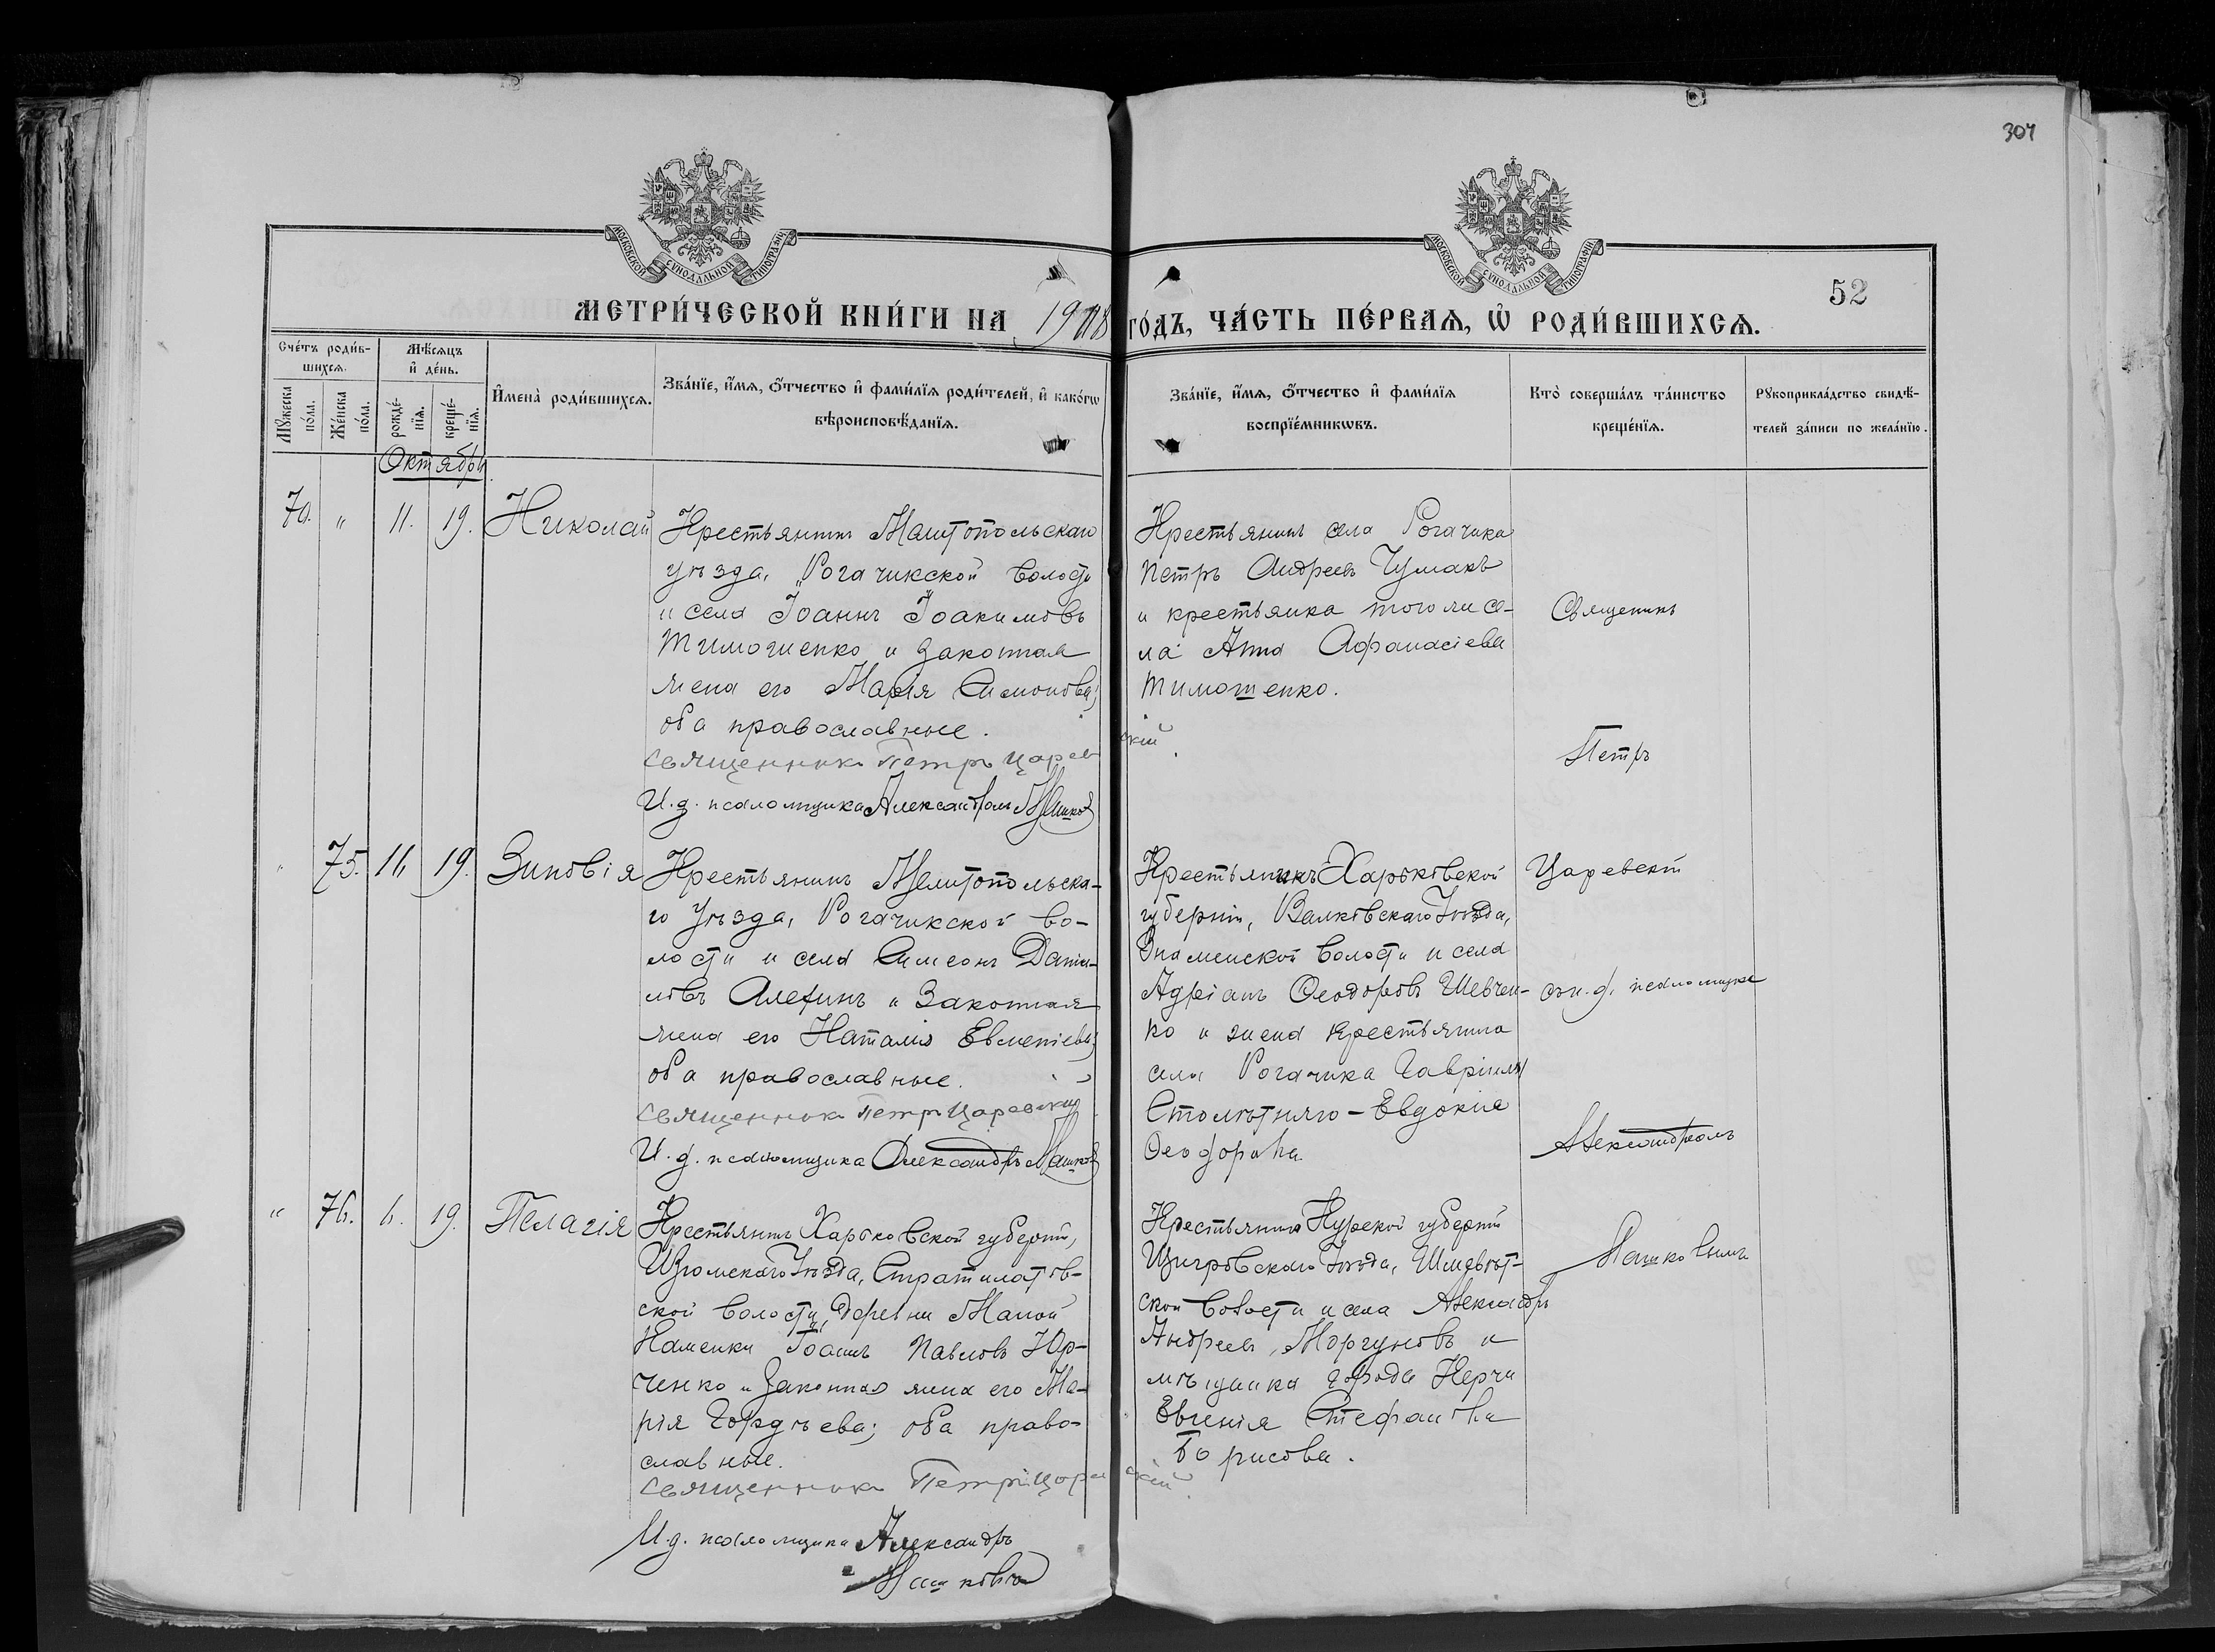 304
МОСКОВСКОЙ СѴНОДАЛЬНОЙ ТИПОГРАФІИ
МОСКОВСКОЙ СѴНОДАЛЬНОЙ ТИПОГРАФІИ
52
МЕТРИ́ЧЕСКОЙ КНИ́ГИ НА 1918 ГО́ДЪ, ЧА́СТЬ ПЕ́РВАѦ, Ѡ РОДИ́ВШИХСѦ.
Сче́тъ роди́в-
шихсѧ.
Мѣ́сѧцъ
и҆ де́нь.
Мꙋжеска
по́ла.
Же́нска
по́ла.
рожде́-
нїѧ.
креще́-
нїѧ.
И҆мена̀ роди́вшихсѧ.
Зва́нїе, и҆́мѧ, ѻ҆́тчество и҆ фами́лїѧ роди́телей, и҆ како́гѡ
вѣроисповѣ́данїѧ.
Зва́нїе, и҆́мѧ, ѻ҆́тчество и҆ фами́лїѧ
воспрїе́мникѡвъ.
Кто̀ соверша́лъ та́инство
креще́нїѧ.
Рꙋкоприкла́дство свидѣ́-
телей за́писи по жела́нїю.
Октябрь
70. " 11. 19. Николай
Крестьянинъ Мелитопольскаго
уѣзда, Рогачикской волости
и села Іоаннъ Іоакимовъ
Тимошенко и законная
жена его Марія Симонова;
оба православные.
священникъ Петръ Царевскій
И. д. псаломщика Александръ Машков
Крестьянинъ села Рогачика
Петръ Андреевъ Чумакъ
и крестьянка того же се-
ла Анна Афанасіева
Тимошенко.
Священникъ
Петръ
" 75. 16 19. Зиновія
Крестьянинъ Мелитопольска-
го уѣзда, Рогачикской во-
лости и села Симеонъ Дани-
ловъ Алехинъ и законная
жена его Наталія Евменіева;
оба православные.
священникъ Петръ Царевскій
И. д. псаломщика Александръ Машков
Крестьянинъ Харьковской
губерніи, Валковскаго Уѣзда,
Знаменской волости и села
Адріанъ Ѳеодоровъ Шевчен-
ко и жена крестьянина
села Рогачика Гавріила
Столѣтняго - Евдокія
Ѳеодорова
Царевскій
съ и. д. псаломщика
Александромъ
" 76. 6. 19. Пелагія
Крестьянинъ Харьковской губерніи,
Изюмскаго Уѣзда, Стратилатов-
ской волости, деревни Малой
Каменки Іоаннъ Павловъ Юр-
ченко и законная жена его Ма-
рія Гордѣева; оба право-
славные.
священникъ Петръ Царевскій
И. д. псаломщика Александръ
Крестьянинъ Курской губерніи
Щигровскаго Уѣзда,
ской волости и села Александръ
Андреевъ Моргуновъ и
мѣщанка города Керчи
Евгенія Стефанова
Борисова.
Машковымъ